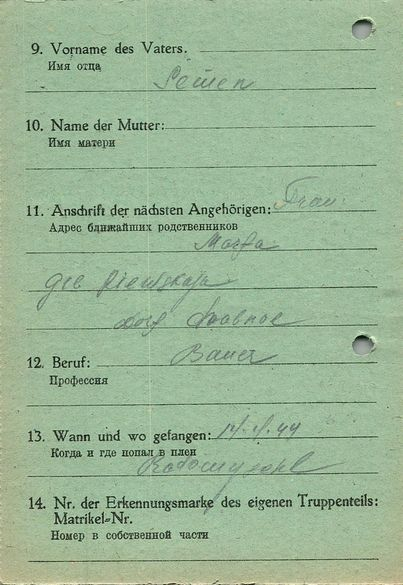 9. Vorname des Vaters.
Имя отца
Semen
10. Name der Mutter:
Имя матери
11. Anschrift der nächsten Angehörigen: Frau
Адрес ближайших родственников
Marfa
geb
Dorf
12. Beruf: Bauer
Профессия
13. Wann und wo gefangen:
Когда и где попал в плен
14. Nr. der Erkennungsmarke des eigenen Truppenteils:
Matrikel-Nr.
Номер в собственной части